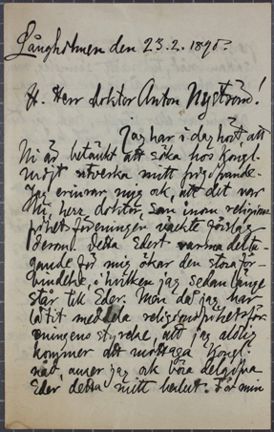 Långholmen den 23.2. 1890.
H. Herr doktor Anton Nyström!
Jag har i dag hört att
Ni är betänkt att söka hos Kongl.
Majt utverka mitt frigifvande.
Jag erinrar mig ock, att det var
Ni, herr doktor, som inom religions-
frihetsföreningen väckte förslag
derom. Detta Edert varma delta-
gande för mig ökar den stora för-
bindelse, i hvilken jag sedan länge
står till Eder. Men då jag har
låtit meddela religionsfrihetsför-
eningens styrelse, att jag aldrig
kommer att mottaga kongl.
nåd, anser jag ock böra delgifva
Eder detta mitt beslut. För min